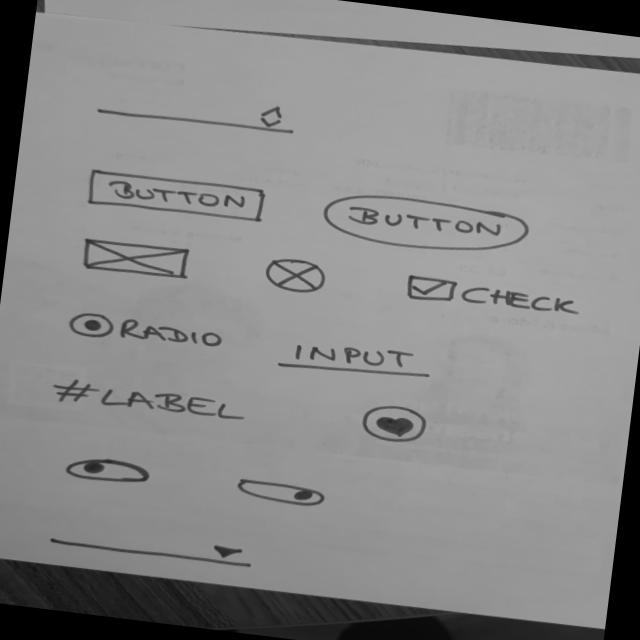 BUTTON
BUTTON
CHECK
RADIO
INPUT
#LABEL